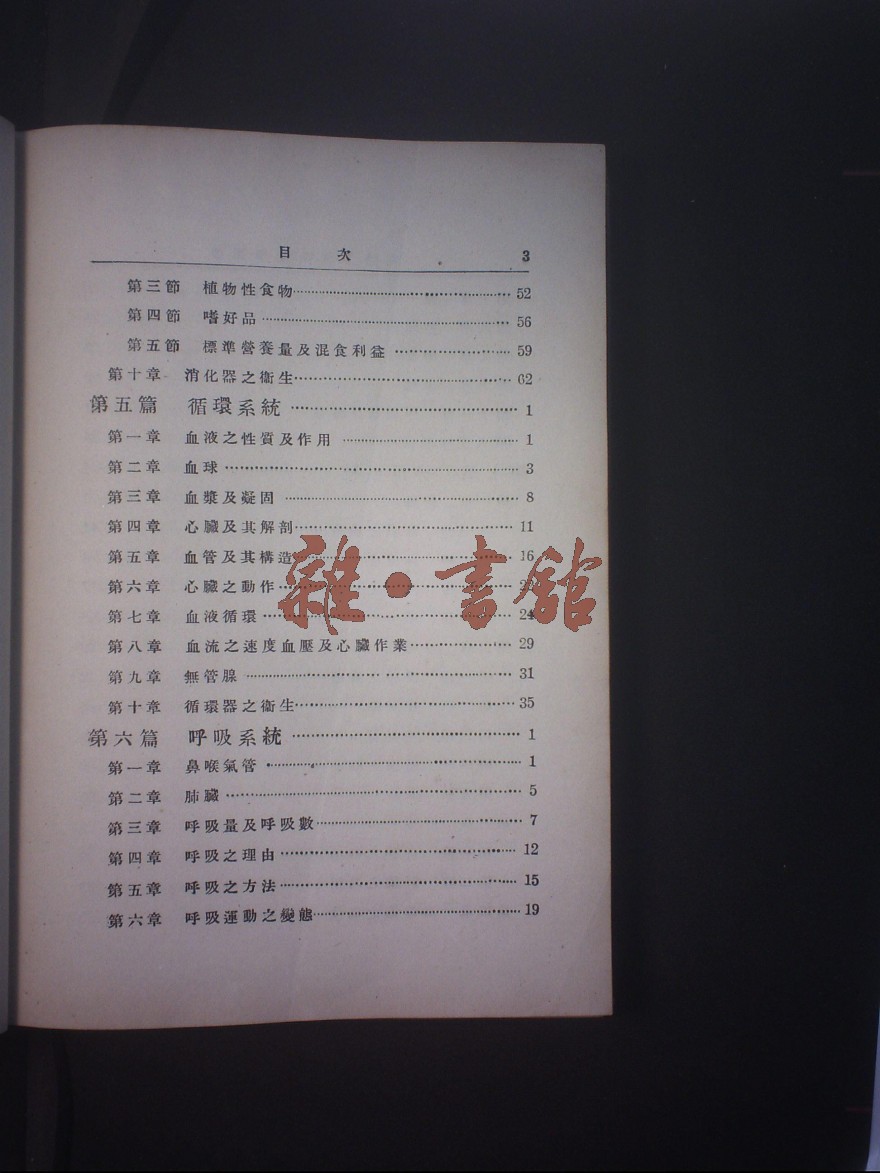 目次 3
第三節 植物性食物 52
第四節 嗜好品 56
第五節 標準營養量及混食利益 59
第十章 消化器之衞生 62
第五篇 循環系統 1
第一章 血液之性質及作用 1
第二章 血球 3
第三章 血漿及凝固 8
第四章 心臟及其解剖 11
第五章 血管及其構造 16
第六章 心臟之動作
第七章 血液循環 24
第八章 血流之速度血壓及心臟作業 29
第九章 無管腺 31
第十章 循環器之衞生 35
第六篇 呼吸系統 1
第一章 鼻喉氣管 1
第二章 肺臟 5
第三章 呼吸量及呼吸數 7
第四章 呼吸之理由 12
第五章 呼吸之方法 15
第六章 呼吸運動之變態 19
雜·書館